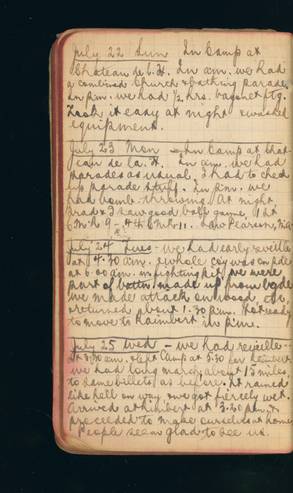 July 22 Sun In Camp at
Chateau de la H. In a.m. we had
a combined Church & bathing parade.
In p.m. we had 1/2 hrs. bayonet ftg.
Took it easy at night & washed
equipment.
July 23 Mon - In Camp at Chat-
eau de la H. In a.m. we had
parades as usual, I had to check
up parade stuff. In p.m. we
had bomb throwing. At night
Brad & I saw good ball game, 1st
July 24 Tues - we had early reveille
at 4.30 a.m. whole coy was on pde
at 6.00 a.m. in fighting kit, we were
part of battn. made up from bgde
we made attack on wood, etc,
returned about 1.30 p.m. Got ready
to move to Raimbert in p.m.
July 25 Wed - we had reveille
at 3.30 a.m. left Camp at 5.30 for
we had long march, about 15 miles
to same billets as before. It rained
like hell on way, we got fiercely wet.
Arrived at Rimbert at 3.30 p.m. &
proceeded to make ourselves at home
People seem glad to see us.